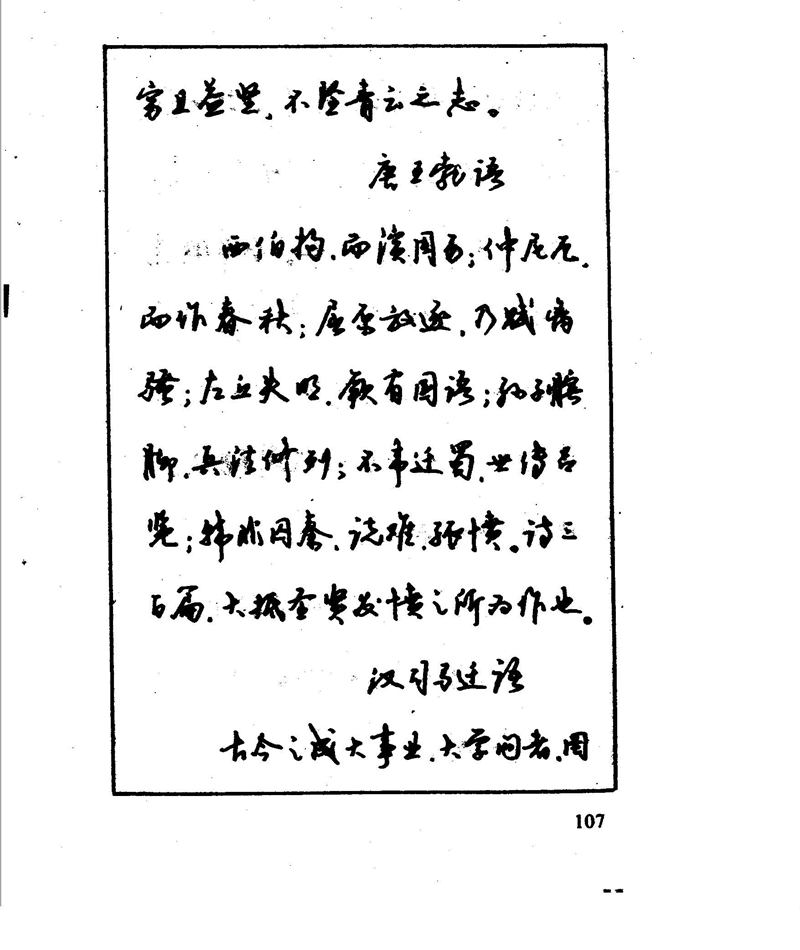 穷且益坚，不坠青云之志。
唐王勃语
西伯拘，而演周易；仲尼厄，
而作春秋；屈原放逐，乃赋离
骚；左丘失明，厥有国语；孙子膑
脚，兵法修列；不韦迁蜀，世传吕
览；韩非囚秦，说难，孤愤。诗三
百篇，大抵圣贤发愤之所为作也。
汉司马迁语
古今之成大事业，大学问者，罔
107